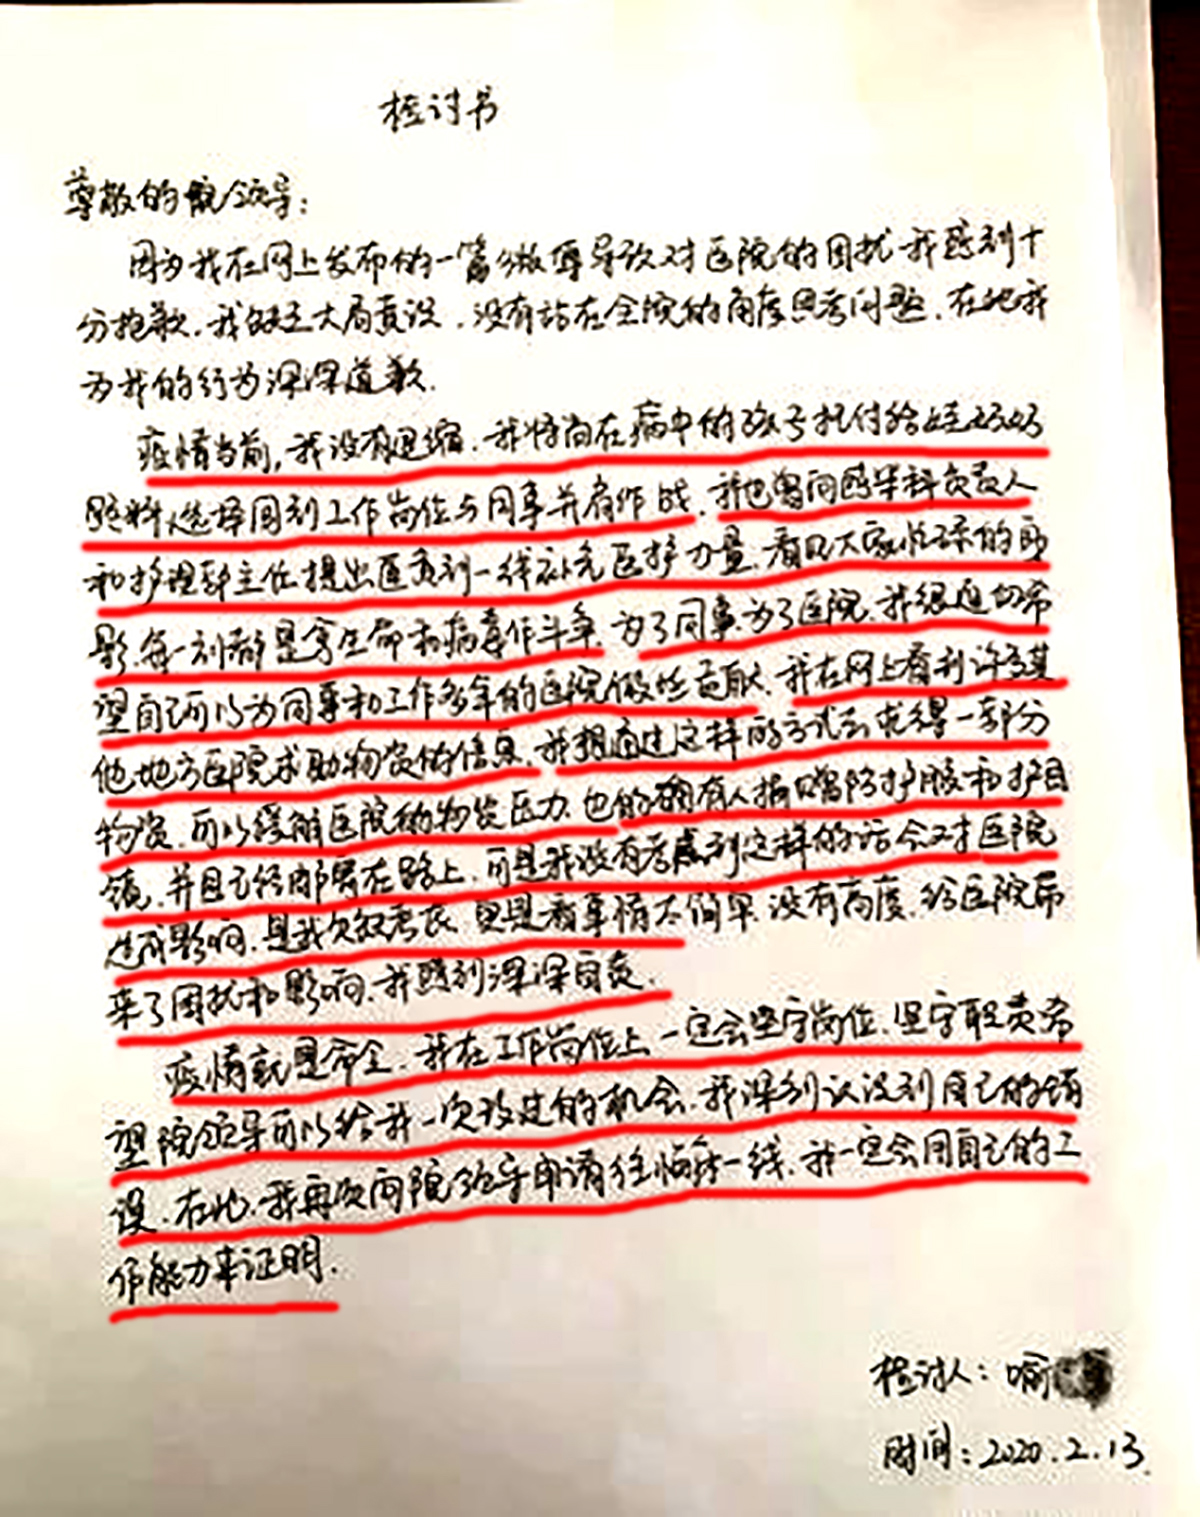 检讨书
尊敬的院领导:
因为我在网上发布的一篇微博导致对医院的困扰.我感到十
分抱歉.我缺乏大局意识.没有站在全院的角度思考问题.在此我
为我的行为深深道歉.
疫情当前,我没有退缩.我将尚在病中的孩子托付给姥姥
照料,选择回到工作岗位与同事并肩作战.我也曾向感染科负责人
和护理部主任提出直到一线补充医护力量.看见大家忙碌的身
影.每一刻都是拿生命和病毒作斗争.为了同事.为了医院.我很迫切希
望自己可以为同事和工作多年的医院做些贡献.我在网上看到许多其
他地方医院求助物资的信息.我想通过这样的方式去求得一部分
物资.可以缓解医院的物资压力.也的确有人捐赠防护服和护目
镜.并且已经邮寄在路上.可是我没有考虑到这样的话会对医院
造成影响.是我欠缺考虑.更是看事情太简单.没有高度.给医院带
来了困扰和影响.我感到深深自责.
疫情就是命令.我在工作岗位上一定会坚守岗位.坚守职责希
望院领导可以给我一次改过的机会.我深刻认识到自己的错
误.在此.我再次向院领导申请往临床一线.我一定会用自己的工
作能力来证明.
检讨人:喻
时间:2020.2.13.